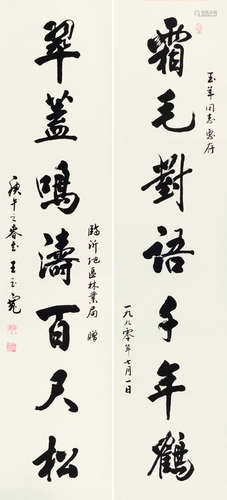 玉华同志惠存
霜毛對語千年鶴
一九九零年七月一日
翠蓋鳴濤百尺松
臨沂地區林業局 贈
庚午之春書王立憲